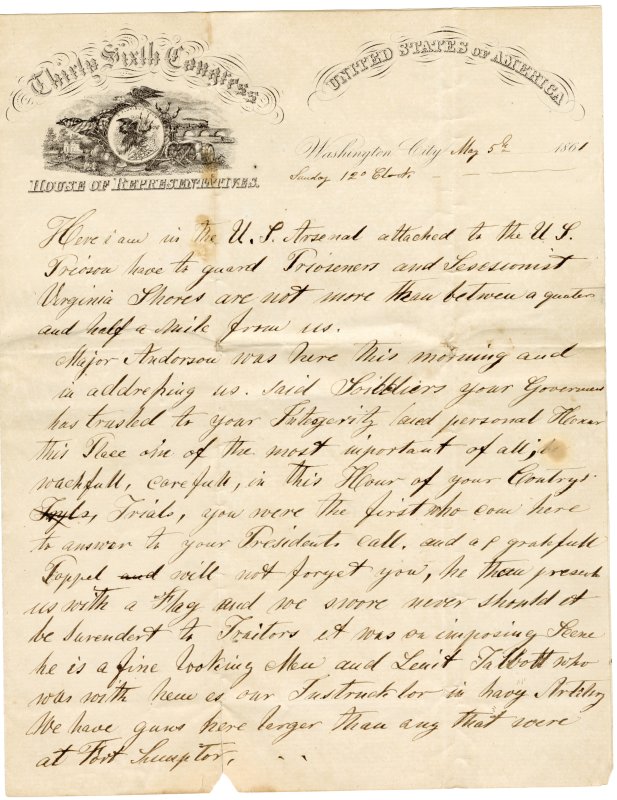 Thirty Sixth Congress
UNITED STATES OF AMERICA
HOUSE OF REPRESENTATIVES.
Washington City May 5th 1861
Sunday 12° Clock
Here i am in the U. S. Arsenal attached to the U S.
Prioson have to guard Prioseners and Sesesionist
Virginia Shores are not more than betwen a quater
and half a Mile from us.
Major Anderson was here this morning and
in addressing us. said Soilldiers your Goverment
has trusted to your Integerity (and personal Honor
this Place oin of the most important of all; be
wachfull, carefull, in this Hour of your Contrys
Tryls, Trials, you were the first who com here
to answer to your Presidents call. and a gratefull
Poppel and will not forget you, he then presente
us with a Flag and we swore never should it
be surendert to Traitors it was an imposing Scene
he is a fine looking Men and Leuit Talbott who
was with hem es our Instrucktor in havy Artilery
We have guns here larger than any that were
at Fort Sumptor.